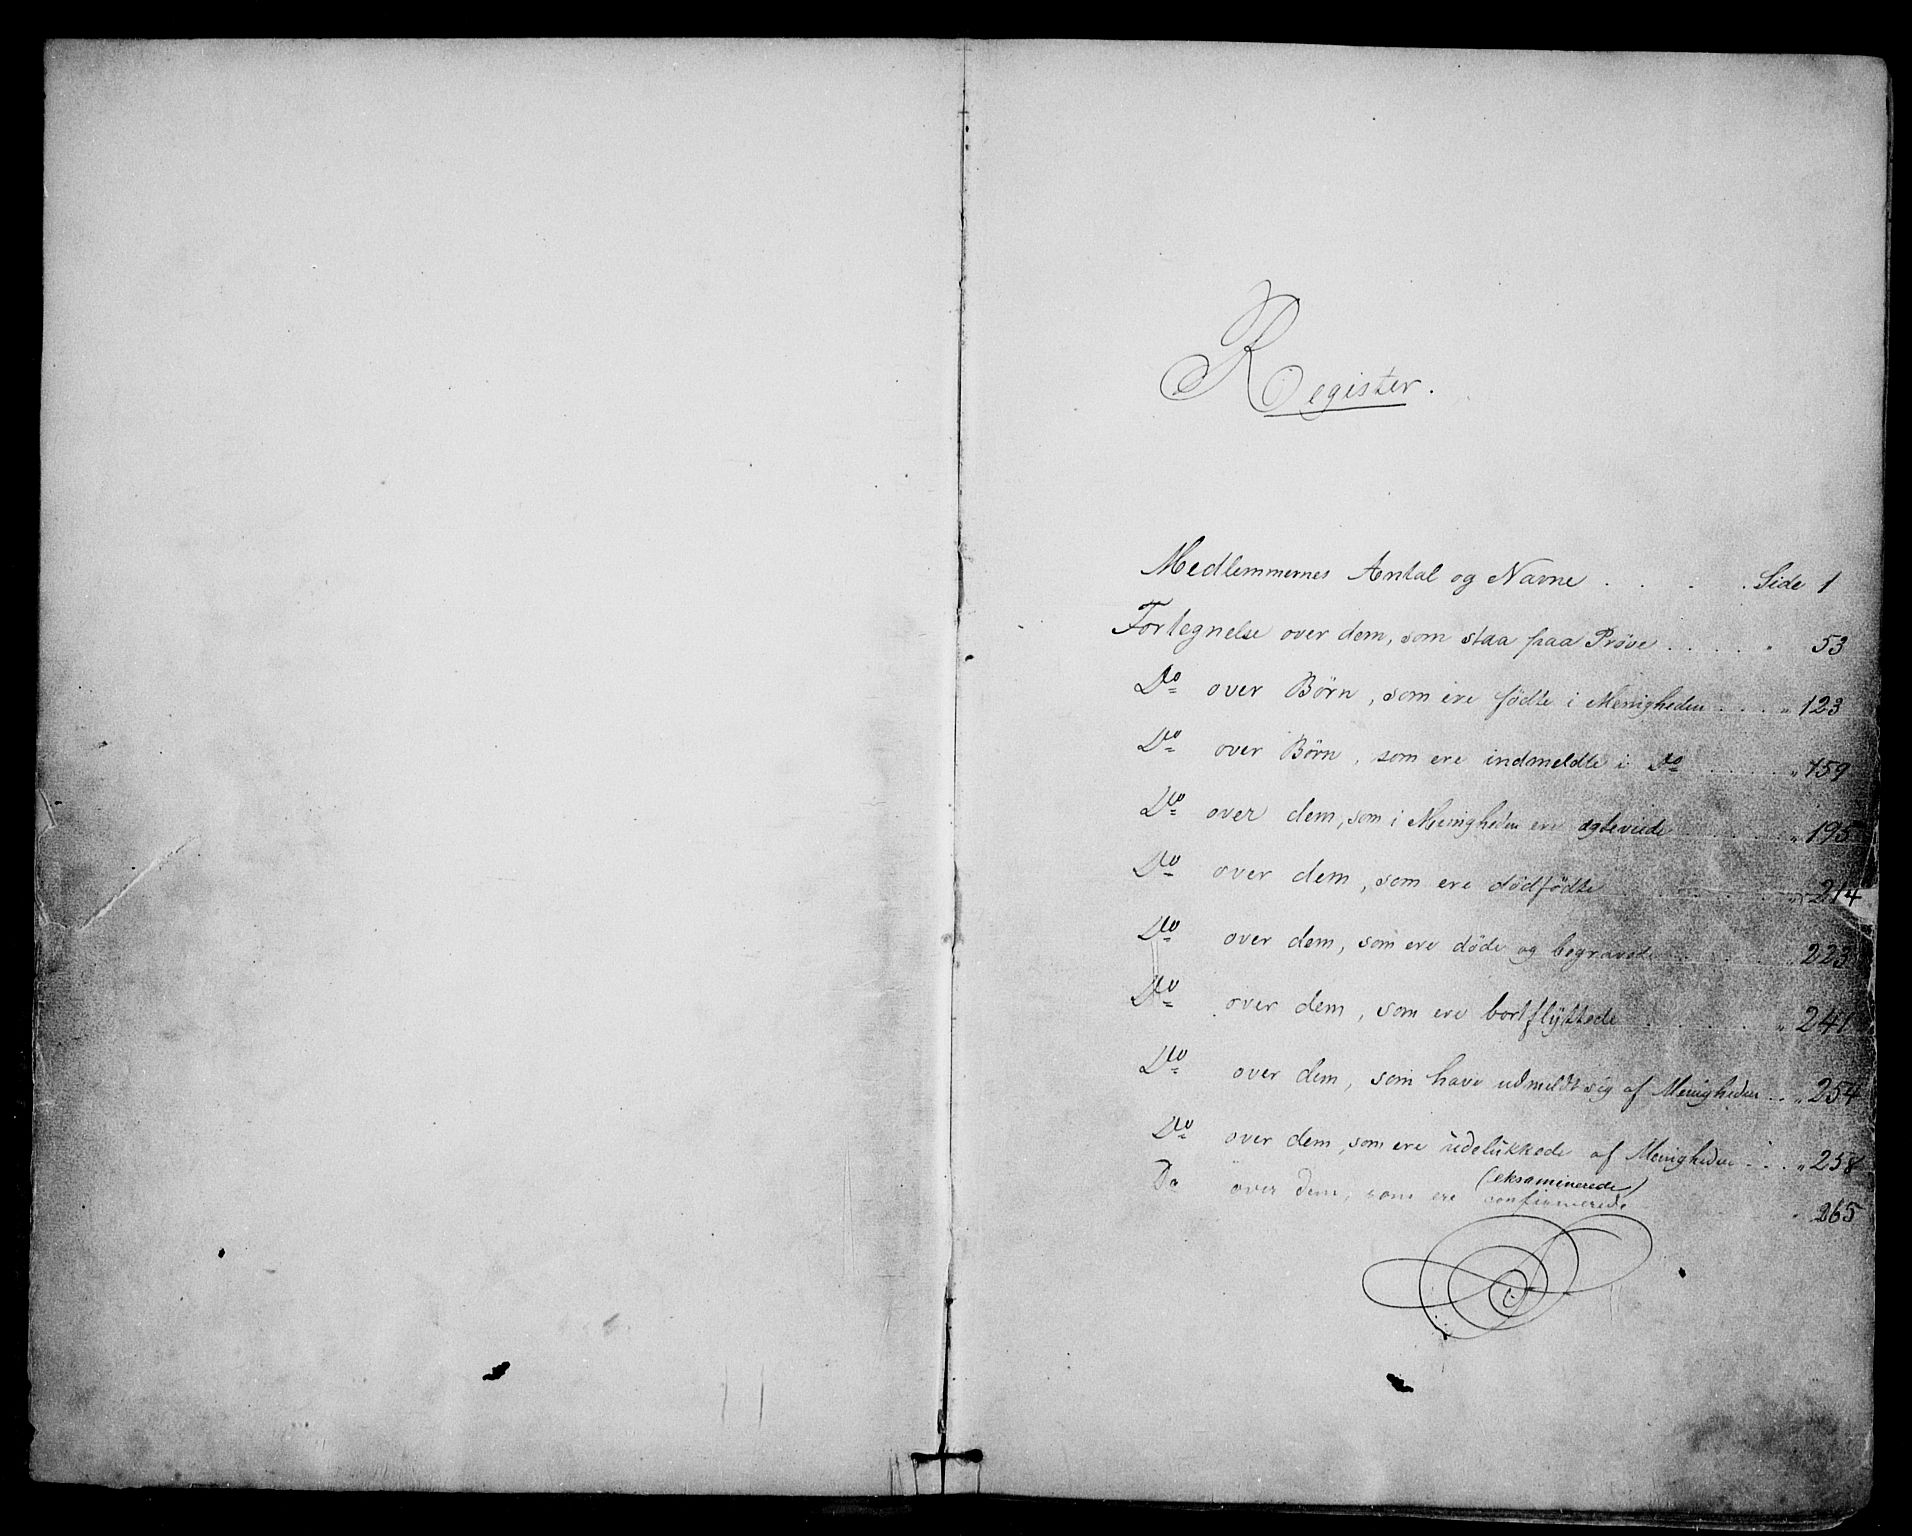 Register.
Medlemmernes Antal og Navne . . . . Side 1
Fortegnelse over dem, som staa paa Prøve . . . . . " 53
Do over Börn, som ere födte i Menigheden . . . . " 123
Do over Börn, som ere indmeldte i Do . . . . " 159
Do over dem, som i Menigheden ere egteviede . . . . " 195
Do over dem, som ere dödfödte . . . . " 214
Do over dem, som ere döde og begravede . . . . " 223
Do over dem, som ere bortflyttede . . . . " 241
Do over dem, som have udmeldt sig af Menigheden . . " 254
Do over dem, som ere udelukkede af Menigheden . . . " 258
(eksaminerede)
Do over dem, som ere confirmerede " 265